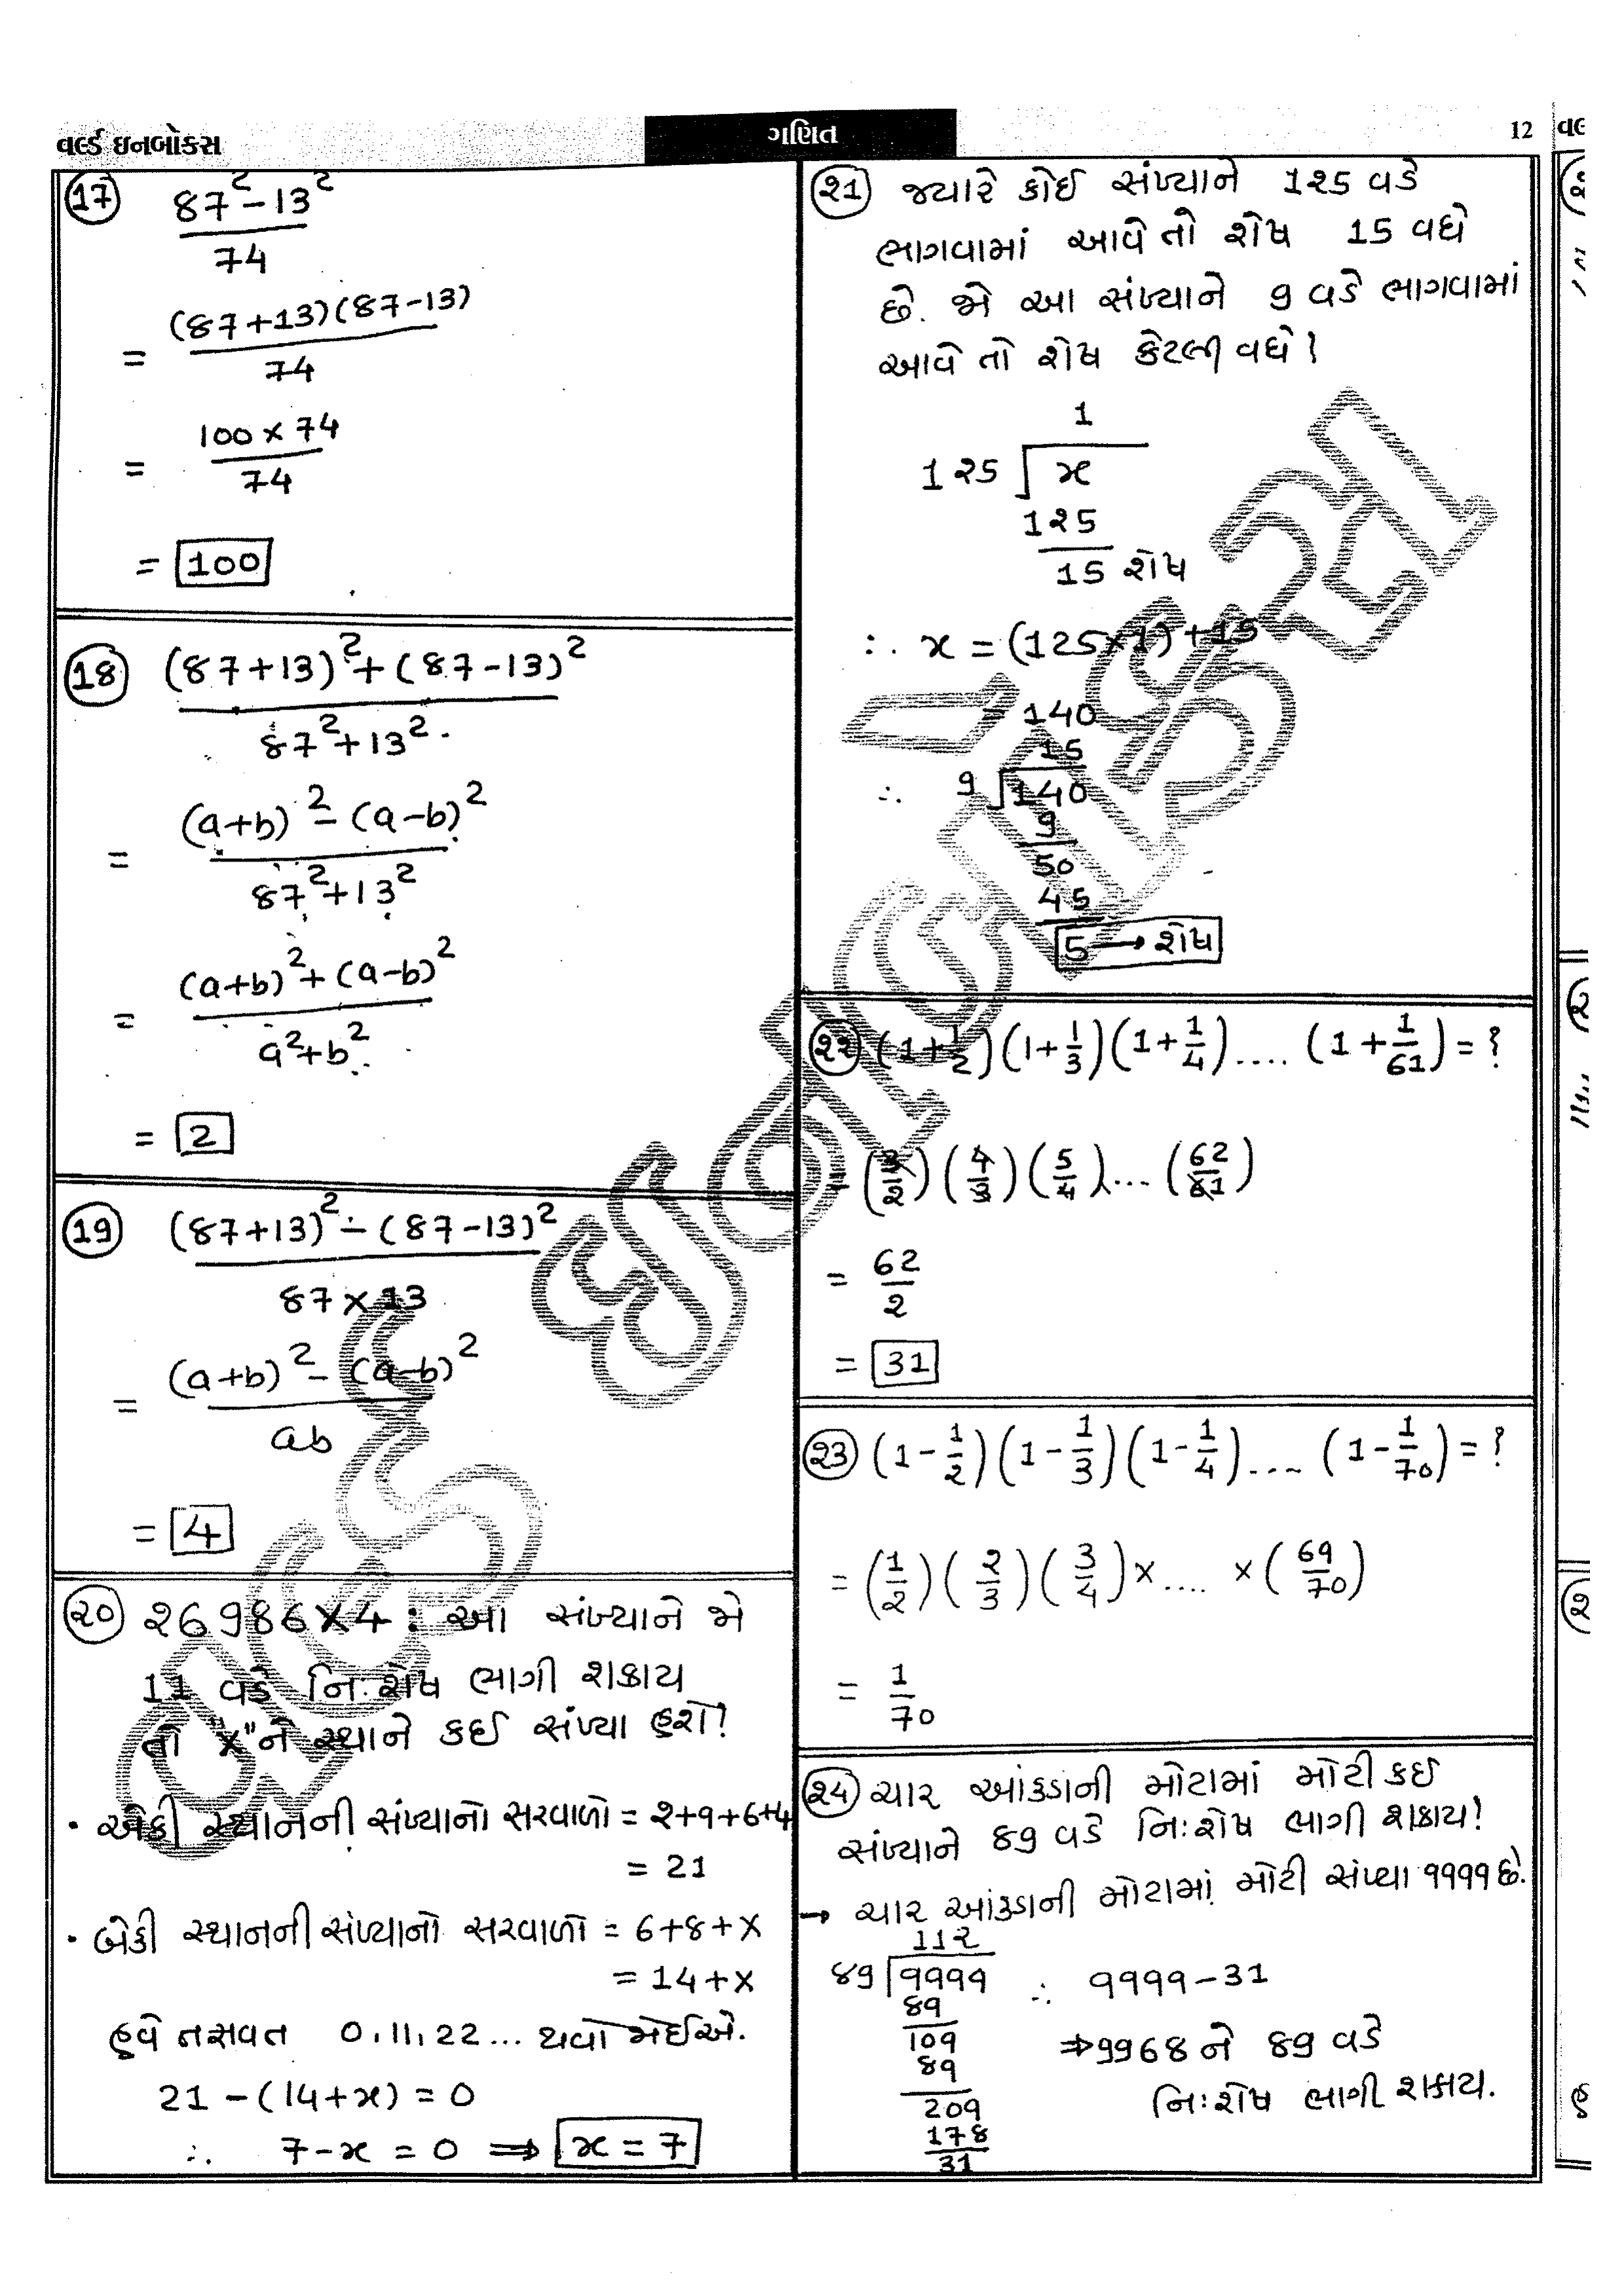 વર્લ્ડ ઇનબોક્સ
ગણિત
12
(17) 87² - 13²
74
= (87+13)(87-13)
74
= 100 × 74
74
= 100
(18) (87+13)² + (87-13)²
87² + 13²
= (a+b)² - (a-b)²
87² + 13²
= (a+b)² + (a-b)²
a² + b²
= 2
(19) (87+13)² - (87-13)²
87 × 13
= (a+b)² - (a-b)²
ab
= 4
(૨૦) ૨6986X4 : આ સંખ્યાને જો
11 વડે નિઃશેષ ભાગી શકાય
તો "X"ને સ્થાને કઈ સંખ્યા હશે?
• એકી સ્થાનની સંખ્યાનો સરવાળો = ૨+૧+6+4
= 21
• બેકી સ્થાનની સંખ્યાનો સરવાળો = 6+8+X
= 14+X
હવે તફાવત 0,11,22... થવો જોઈએ.
21 - (14+x) = 0
∴ 7-x = 0 ⟹ x = 7
(૨1) જ્યારે કોઈ સંખ્યાને 1૨5 વડે
ભાગવામાં આવે તો શેષ 15 વધે
છે. જો આ સંખ્યાને 9 વડે ભાગવામાં
આવે તો શેષ કેટલી વધે?
1
1૨5 x
1૨5
15 શેષ
∴ x = (125×1)+15
= 140
15
∴ 9 140
9
50
45
5 → શેષ
(૨૨) (1+1/2)(1+1/3)(1+1/4).... (1+1/61) = ?
= (3/2)(4/3)(5/4)... (6૨/61)
= 6૨
૨
= 31
(૨3) (1-1/2)(1-1/3)(1-1/4).... (1-1/70) = ?
= (1/2)(2/3)(3/4)×.... ×(69/70)
= 1
70
(૨4) ચાર આંકડાની મોટામાં મોટી કઈ
સંખ્યાને 89 વડે નિઃશેષ ભાગી શકાય?
→ ચાર આંકડાની મોટામાં મોટી સંખ્યા ૧૧૧૧ છે.
11૨
89 9999 ∴ ૧૧૧૧-31
89
109 ⇒9968 ને 89 વડે
89
209 નિઃશેષ ભાગી શકાય.
178
31